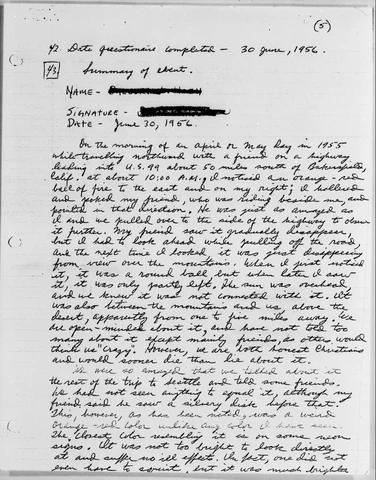 (5)
42. Date Questionaire completed - 30 June, 1956.
43. Summary of event.
NAME -
SIGNATURE -
DATE - June 30, 1956.
On the morning of an april or May day in 1955
while travelling northward with a friend on a highway
leading into U.S. 99 about 50 miles south of Bakersfield,
Calif. at about 10:00 A.M., I noticed an orange-red
ball of fire to the east and on my right; I hollered
and poked my friend, who was riding beside me, and
pointed in that direction. He was just as amazed as
I and we pulled over to the side of the highway to observe
it further. My friend saw it gradually disappear,
but I had to look ahead while pulling off the road,
and the next time I looked it was just disappearing
from view over the mountains. When I first noticed
it, it was a round ball but when later I saw
it, it was only partly left. The sun was overhead
and we knew it was not connected with it. It
was also between the mountains and us above the
desert, apparently from one to five miles away. We
are open-minded about it, and have not told too
many about it except mainly friends, as others would
think us "crazy". However, we are both honest Christians
and would sooner die than lie about it.
We were so amazed that we talked about it
the rest of the trip to Seattle and told some friends.
We had not seen anything to equal it, although my
friend said he saw a silvery disk before that.
This, however, as has been noted, was a weird
orange-red color unlike any color I have seen.
The closest color resembling it is on some neon
signs. It was not too bright to look directly
at and suffer no ill effect. In fact, one did not
even have to squint, but it was much brighter